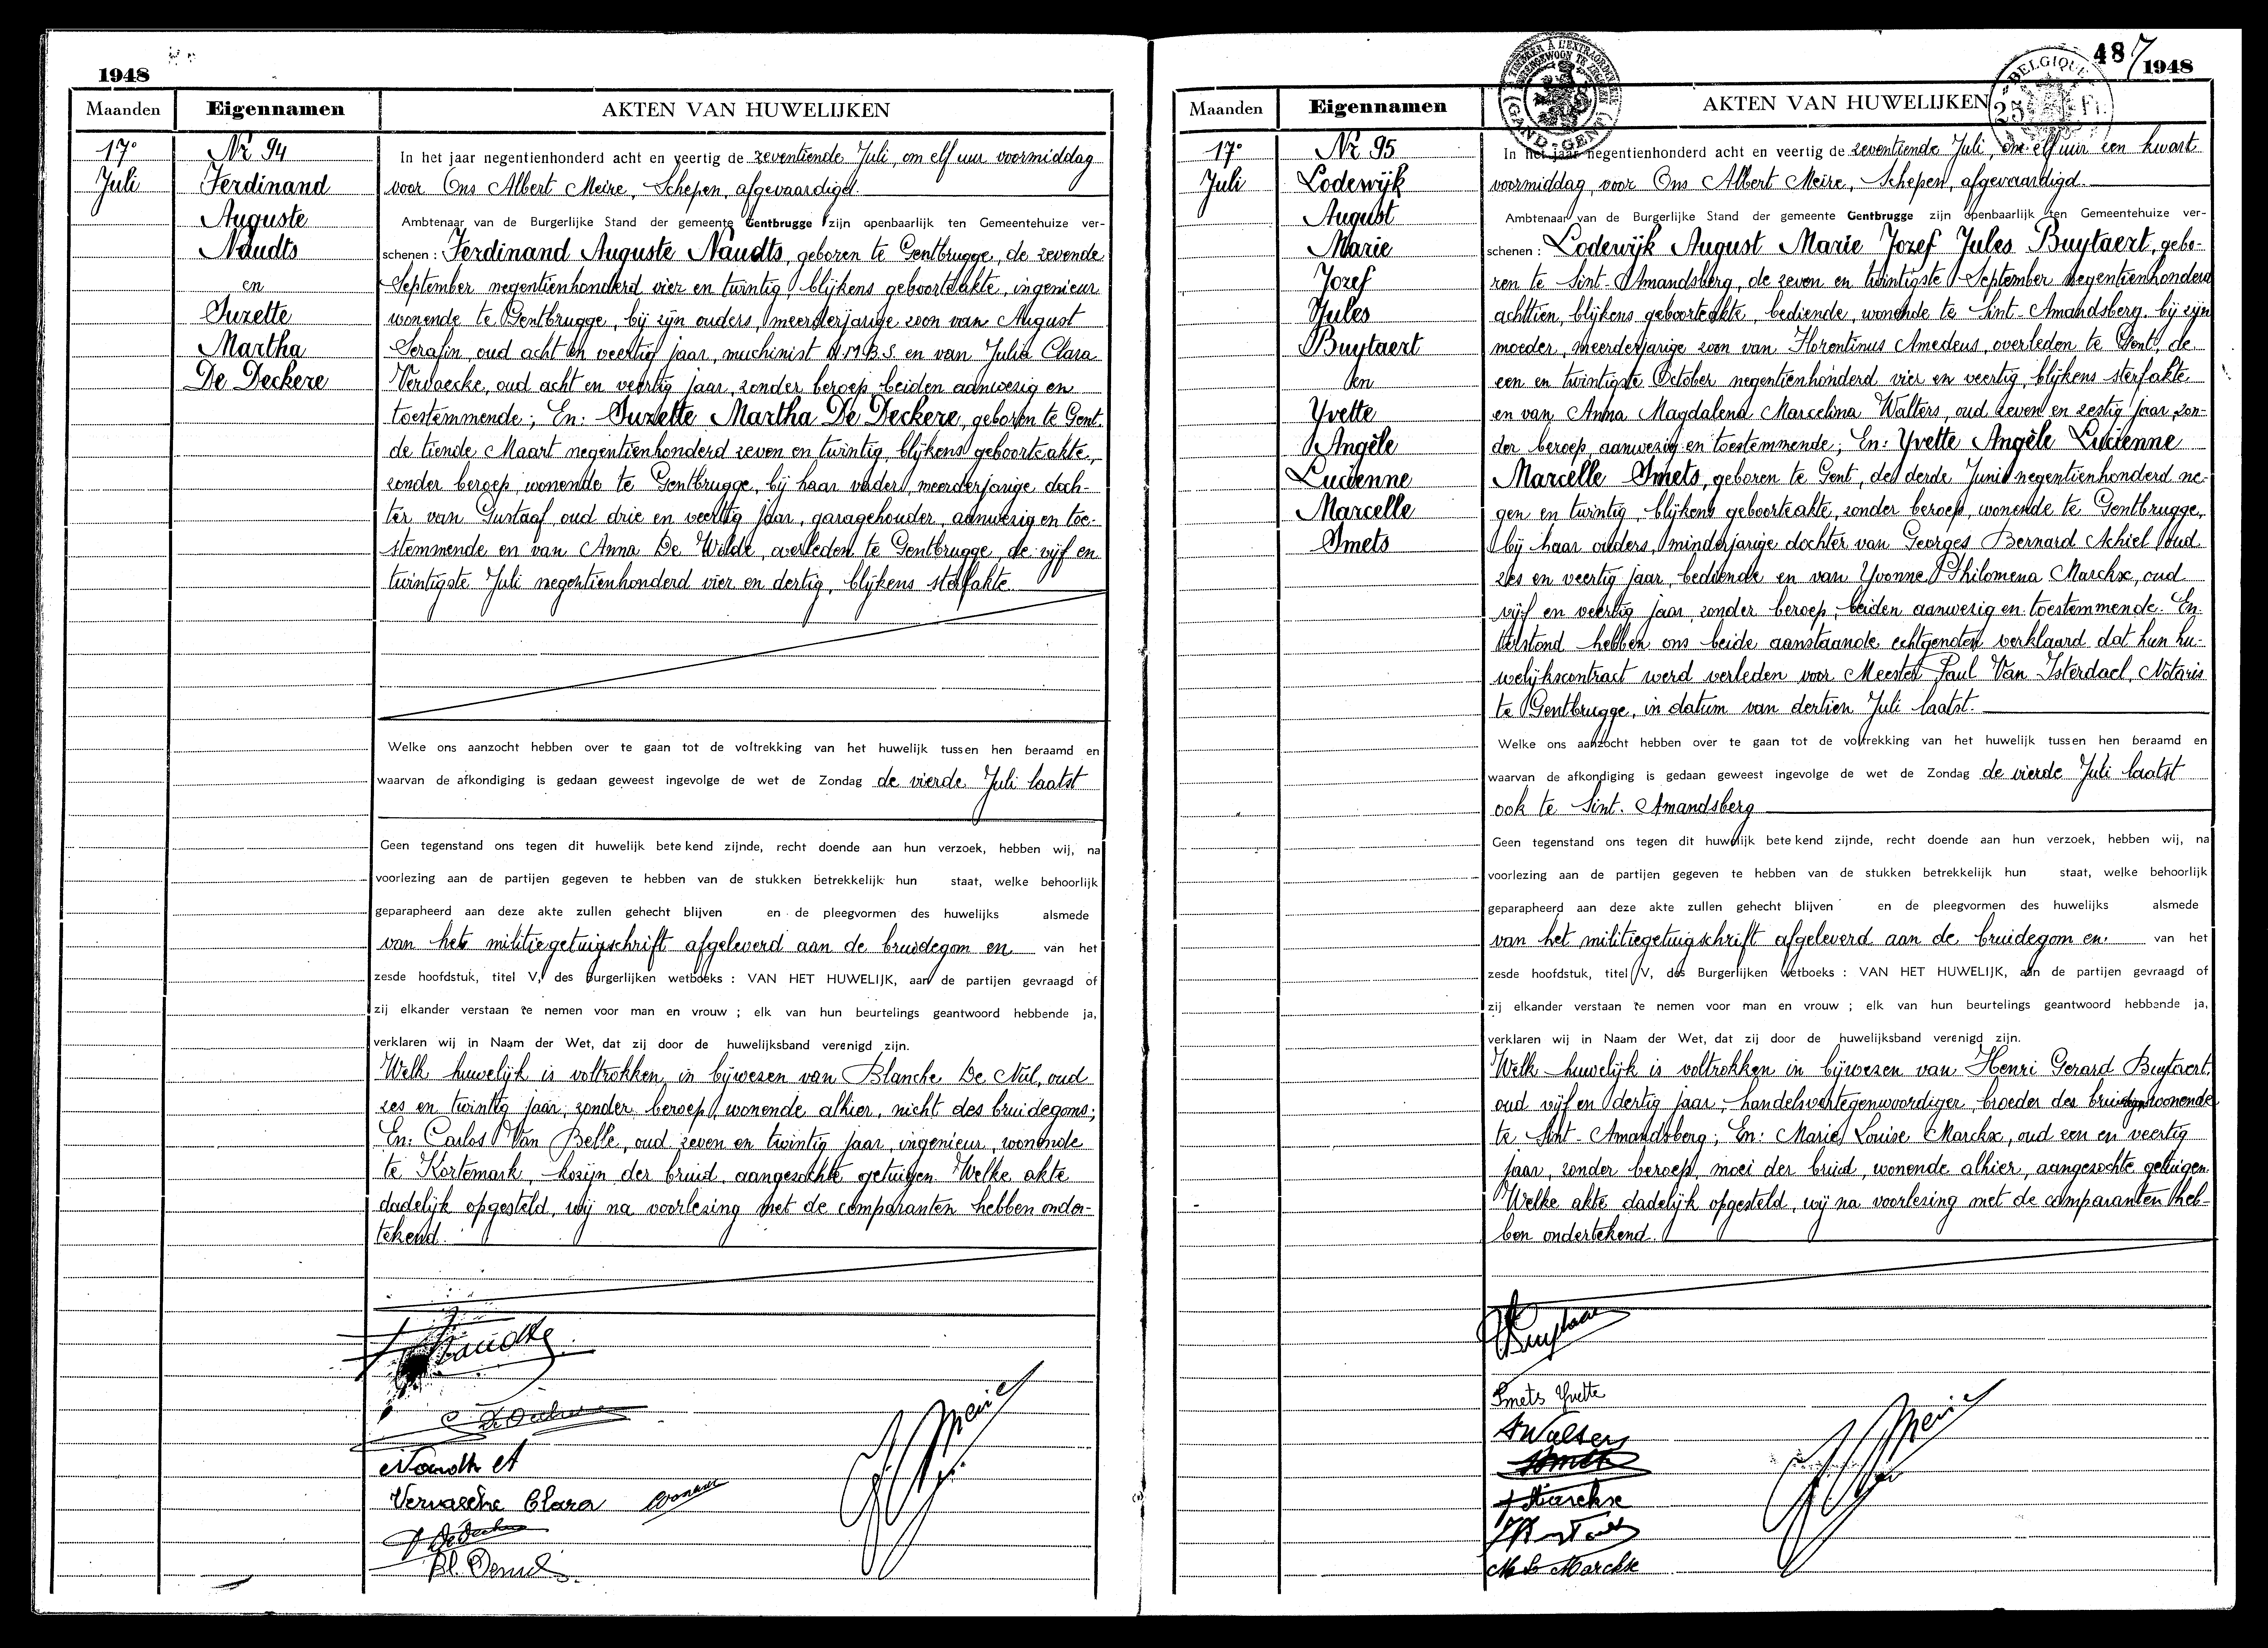 1948
Maanden
Eigennamen
AKTEN VAN HUWELIJKEN
17°
Juli
Nr 94
Ferdinand
Auguste
Naudts
en
Suzette
Martha
De Deckere
In het jaar negentienhonderd acht en veertig de zeventiende Juli, om elf uur voormiddag
voor Ons Albert Meire, Schepen, afgevaardigd
Ambtenaar van de Burgerlijke Stand der gemeente Gentbrugge zijn openbaarlijk ten Gemeentehuize ver-
schenen : Ferdinand Auguste Naudts, geboren te Gentbrugge, de zevende
September negentienhonderd vier en twintig, blijkens geboorteakte, ingenieur
wonende te Gentbrugge, bij zijn ouders, meerderjarige zoon van August
Serafin, oud acht en veertig jaar, machinist N.M.B.S. en van Julia Clara
Vervaecke, oud acht en veertig jaar, zonder beroep, beiden aanwezig en
toestemmende; En: Suzette Martha De Deckere, geboren te Gent,
de tiende Maart negentienhonderd zeven en twintig, blijkens geboorteakte,
zonder beroep, wonende te Gentbrugge, bij haar vader, meerderjarige doch-
ter van Gustaaf, oud drie en veertig jaar, garagehouder, aanwezig en toe-
stemmende en van Anna De Wilde, overleden te Gentbrugge, de vijf en
twintigste Juli negentienhonderd vier en dertig, blijkens sterfakte.
Welke ons aanzocht hebben over te gaan tot de voltrekking van het huwelijk tussen hen beraamd en
waarvan de afkondiging is gedaan geweest ingevolge de wet de Zondag de vierde Juli laatst
Geen tegenstand ons tegen dit huwelijk betekend zijnde, recht doende aan hun verzoek, hebben wij, na
voorlezing aan de partijen gegeven te hebben van de stukken betrekkelijk hun staat, welke behoorlijk
geparapheerd aan deze akte zullen gehecht blijven en de pleegvormen des huwelijks alsmede
van het militiegetuigschrift afgeleverd aan de bruidegom en van het
zesde hoofdstuk, titel V, des Burgerlijken wetboeks : VAN HET HUWELIJK, aan de partijen gevraagd of
zij elkander verstaan te nemen voor man en vrouw ; elk van hun beurtelings geantwoord hebbende ja,
verklaren wij in Naam der Wet, dat zij door de huwelijksband verenigd zijn.
Welk huwelijk is voltrokken in bijwezen van Blanche De Nul, oud
zes en twintig jaar, zonder beroep, wonende alhier, nicht des bruidegoms;
En: Carlos Van Belle, oud zeven en twintig jaar, ingenieur, wonende
te Kortemark, kozijn der bruid, aangezochte getuigen. Welke akte
dadelijk opgesteld, wij na voorlezing met de comparanten hebben onder-
tekend.
Naudts
Naudts A
Vervaecke Clara
Bl. Denul
487
1948
TIMBRER À L'EXTRAORDINAIRE
GAND-GENT
BELGIQUE
25 Fr.
Maanden
Eigennamen
AKTEN VAN HUWELIJKEN
17°
Juli
Nr 95
Lodewijk
August
Marie
Jozef
Jules
Buytaert
en
Yvette
Angèle
Lucienne
Marcelle
Smets
In het jaar negentienhonderd acht en veertig de zeventiende Juli, om elf uur een kwart
voormiddag, voor Ons Albert Meire, Schepen, afgevaardigd
Ambtenaar van de Burgerlijke Stand der gemeente Gentbrugge zijn openbaarlijk ten Gemeentehuize ver-
schenen : Lodewijk August Marie Jozef Jules Buytaert, gebo-
ren te Sint-Amandsberg, de zeven en twintigste September negentienhonderd
achttien, blijkens geboorteakte, bediende, wonende te Sint-Amandsberg, bij zijn
moeder, meerderjarige zoon van Florentinus Amedeus, overleden te Gent, de
een en twintigste October negentienhonderd vier en veertig, blijkens sterfakte
en van Anna Magdalena Marcelina Walters, oud zeven en zestig jaar, zon-
der beroep, aanwezig en toestemmende; En: Yvette Angèle Lucienne
Marcelle Smets, geboren te Gent, de derde Juni negentienhonderd ne-
gen en twintig, blijkens geboorteakte, zonder beroep, wonende te Gentbrugge,
bij haar ouders, minderjarige dochter van Georges Bernard Achiel oud
zes en veertig jaar, bediende en van Yvonne Philomena Marckx, oud
vijf en veertig jaar, zonder beroep, beiden aanwezig en toestemmende. En
terstond hebben ons beide aanstaande echtgenoten verklaard dat hun hu-
welijkscontract werd verleden voor Meester Paul Van Isterdael, Notaris
te Gentbrugge, in datum van dertien Juli laatst.
Welke ons aanzocht hebben over te gaan tot de voltrekking van het huwelijk tussen hen beraamd en
waarvan de afkondiging is gedaan geweest ingevolge de wet de Zondag de vierde Juli laatst
ook te Sint-Amandsberg
Geen tegenstand ons tegen dit huwelijk betekend zijnde, recht doende aan hun verzoek, hebben wij, na
voorlezing aan de partijen gegeven te hebben van de stukken betrekkelijk hun staat, welke behoorlijk
geparapheerd aan deze akte zullen gehecht blijven en de pleegvormen des huwelijks alsmede
van het militiegetuigschrift afgeleverd aan de bruidegom en van het
zesde hoofdstuk, titel V, des Burgerlijken wetboeks : VAN HET HUWELIJK, aan de partijen gevraagd of
zij elkander verstaan te nemen voor man en vrouw ; elk van hun beurtelings geantwoord hebbende ja,
verklaren wij in Naam der Wet, dat zij door de huwelijksband verenigd zijn.
Welk huwelijk is voltrokken in bijwezen van Henri Gerard Buytaert,
oud vijf en dertig jaar, handelsvertegenwoordiger, broeder des bruidegoms wonende
te Sint-Amandsberg; En: Marie Louise Marckx, oud een en veertig
jaar, zonder beroep, moei der bruid, wonende alhier, aangezochte getuigen.
Welke akte dadelijk opgesteld, wij na voorlezing met de comparanten heb-
ben ondertekend.
Smets Yvette
A Walters
Smets
Y Marckx
M L Marckx